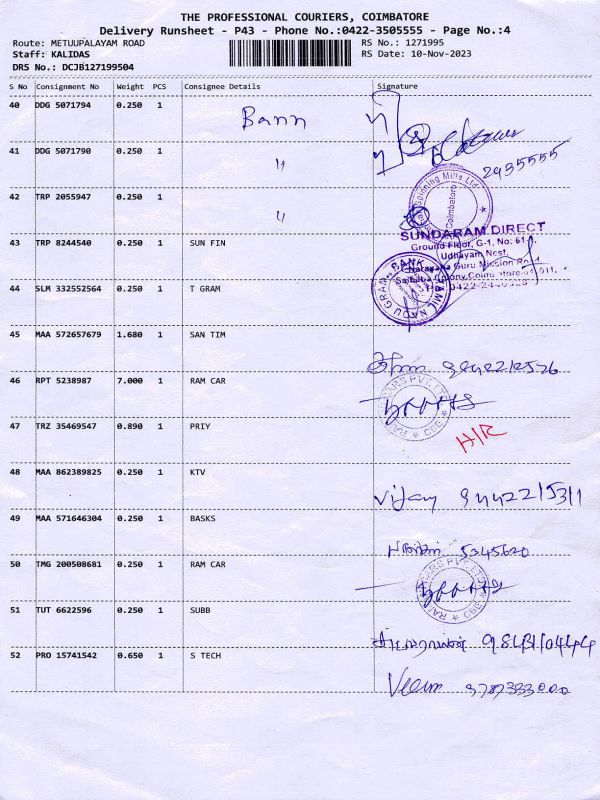 THE PROFESSIONAL COURIERS, COIMBATORE
Delivery Runsheet - P43 - Phone No.:0422-3505555 - Page No.:4
Route: METUUPALAYAM ROAD RS No.: 1271995
Staff: KALIDAS RS Date: 10-Nov-2023
DRS No.: DCJB127199504
S No Consignment No Weight PCS Consignee Details Signature
40 DDG 5071794 0.250 1 Bann
41 DDG 5071790 0.250 1 〃
2435555
42 TRP 2055947 0.250 1 〃
Spinning Mills Ltd
Coimbatore
43 TRP 8244540 0.250 1 SUN FIN
SUNDARAM DIRECT
Ground Floor, G-1, No: 61
Udhayam Nest,
Narayana Guru Mission Road
Saibaba Colony, Coimbatore
44 SLM 332552564 0.250 1 T GRAM
TAMIL NADU GRAMA BANK
45 MAA 572657679 1.680 1 SAN TIM
46 RPT 5238987 7.000 1 RAM CAR
CARS PVT LTD
CBE
47 TRZ 35469547 0.890 1 PRIY H/R
48 MAA 862389825 0.250 1 KTV Vijay
49 MAA 571646304 0.250 1 BASKS 5345620
50 TMG 200508681 0.250 1 RAM CAR
CARS PVT LTD
CBE
51 TUT 6622596 0.250 1 SUBB
52 PRO 15741542 0.650 1 S TECH 9787333000